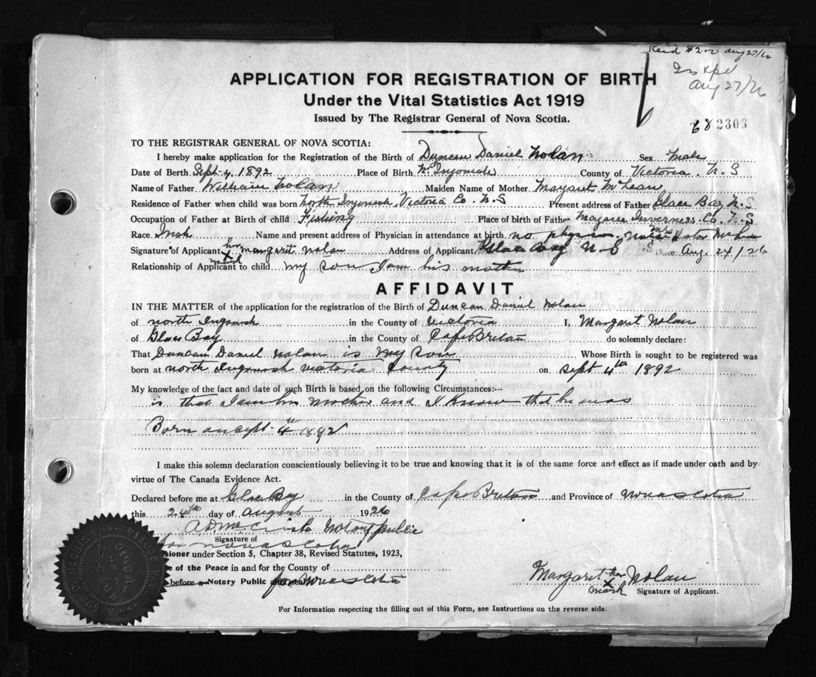 Rec'd $2.00 Aug 27/26
Aug 27/26
682303
APPLICATION FOR REGISTRATION OF BIRTH
Under the Vital Statistics Act 1919
Issued by The Registrar General of Nova Scotia.
TO THE REGISTRAR GENERAL OF NOVA SCOTIA:
I hereby make application for the Registration of the Birth of Duncan Daniel Nolan Sex Male
Date of Birth Sept. 4. 1892 Place of Birth N. Ingonish County of Victoria. N. S
Name of Father William Nolan Maiden Name of Mother Margaret McLean
Residence of Father when child was born North Ingonish, Victoria Co. N.S Present address of Father Glace Bay N. S
Occupation of Father at Birth of child Fishing Place of birth of Father Margaree Inverness Co. N. S
Race Irish Name and present address of Physician in attendance at birth no physician
Signature of Applicant her X mark Margaret Nolan Address of Applicant Glace Bay N-S Date Aug. 24/26
Relationship of Applicant to child my son I am his mother
AFFIDAVIT
IN THE MATTER of the application for the registration of the Birth of Duncan Daniel Nolan
of north Ingonish in the County of Victoria I, Margaret Nolan
of Glace Bay in the County of Cape Breton do solemnly declare:
That Duncan Daniel Nolan is my Son Whose Birth is sought to be registered was
born at north Ingonosh Victoria County on Sept 4th 1892
My knowledge of the fact and date of such Birth is based on the following Circumstances:—
is that I am his mother and I Know that he was
Born on Sept. 4th 1892
I make this solemn declaration conscientiously believing it to be true and knowing that it is of the same force and effect as if made under oath and by
virtue of The Canada Evidence Act.
Declared before me at Glace Bay in the County of Cape Breton and Province of Nova Scotia
this 24th day of August 1926
Notary public
Signature of
for Nova Scotia
sioner under Section 5, Chapter 38, Revised Statutes, 1923,
e of the Peace in and for the County of
before a Notary Public for Nova Scotia
Margaret her X mark Nolan
Signature of Applicant.
For Information respecting the filling out of this Form, see Instructions on the reverse side.